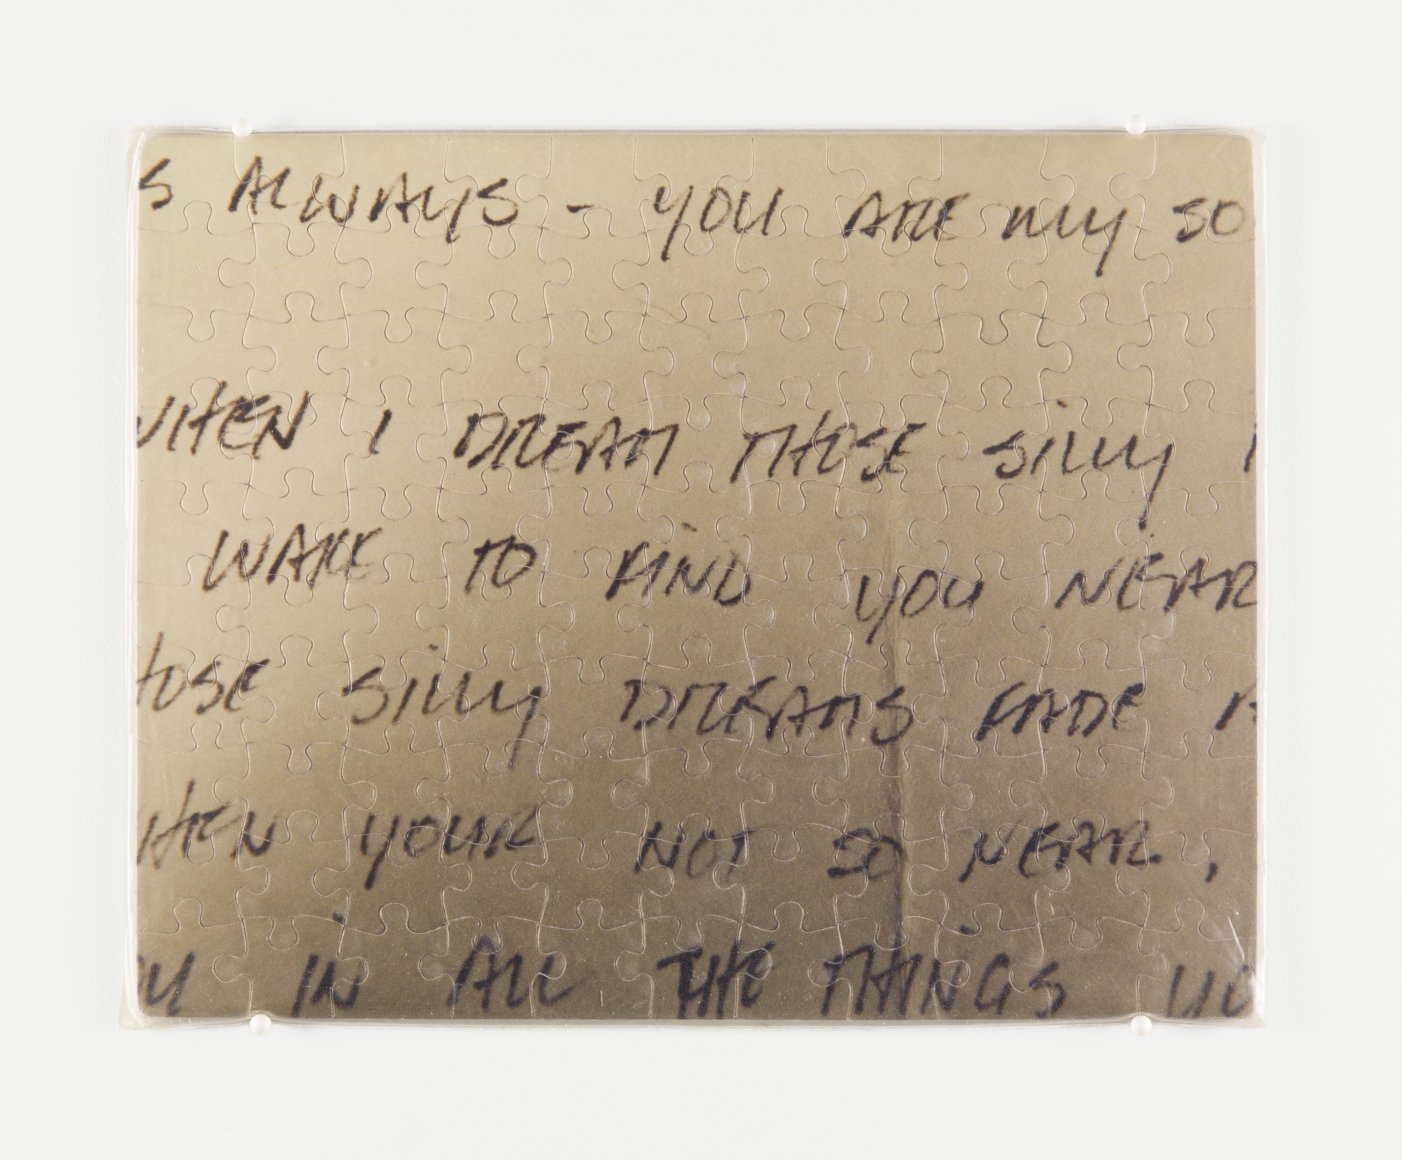 S ALWAYS - YOU ARE MY SO
WHEN I DREAM THOSE SILLY
WAKE TO FIND YOU NEAR
HOSE SILLY DREAMS FADE
WHEN YOUR NOT SO NEAR,
OU IN ALL THE THINGS YO